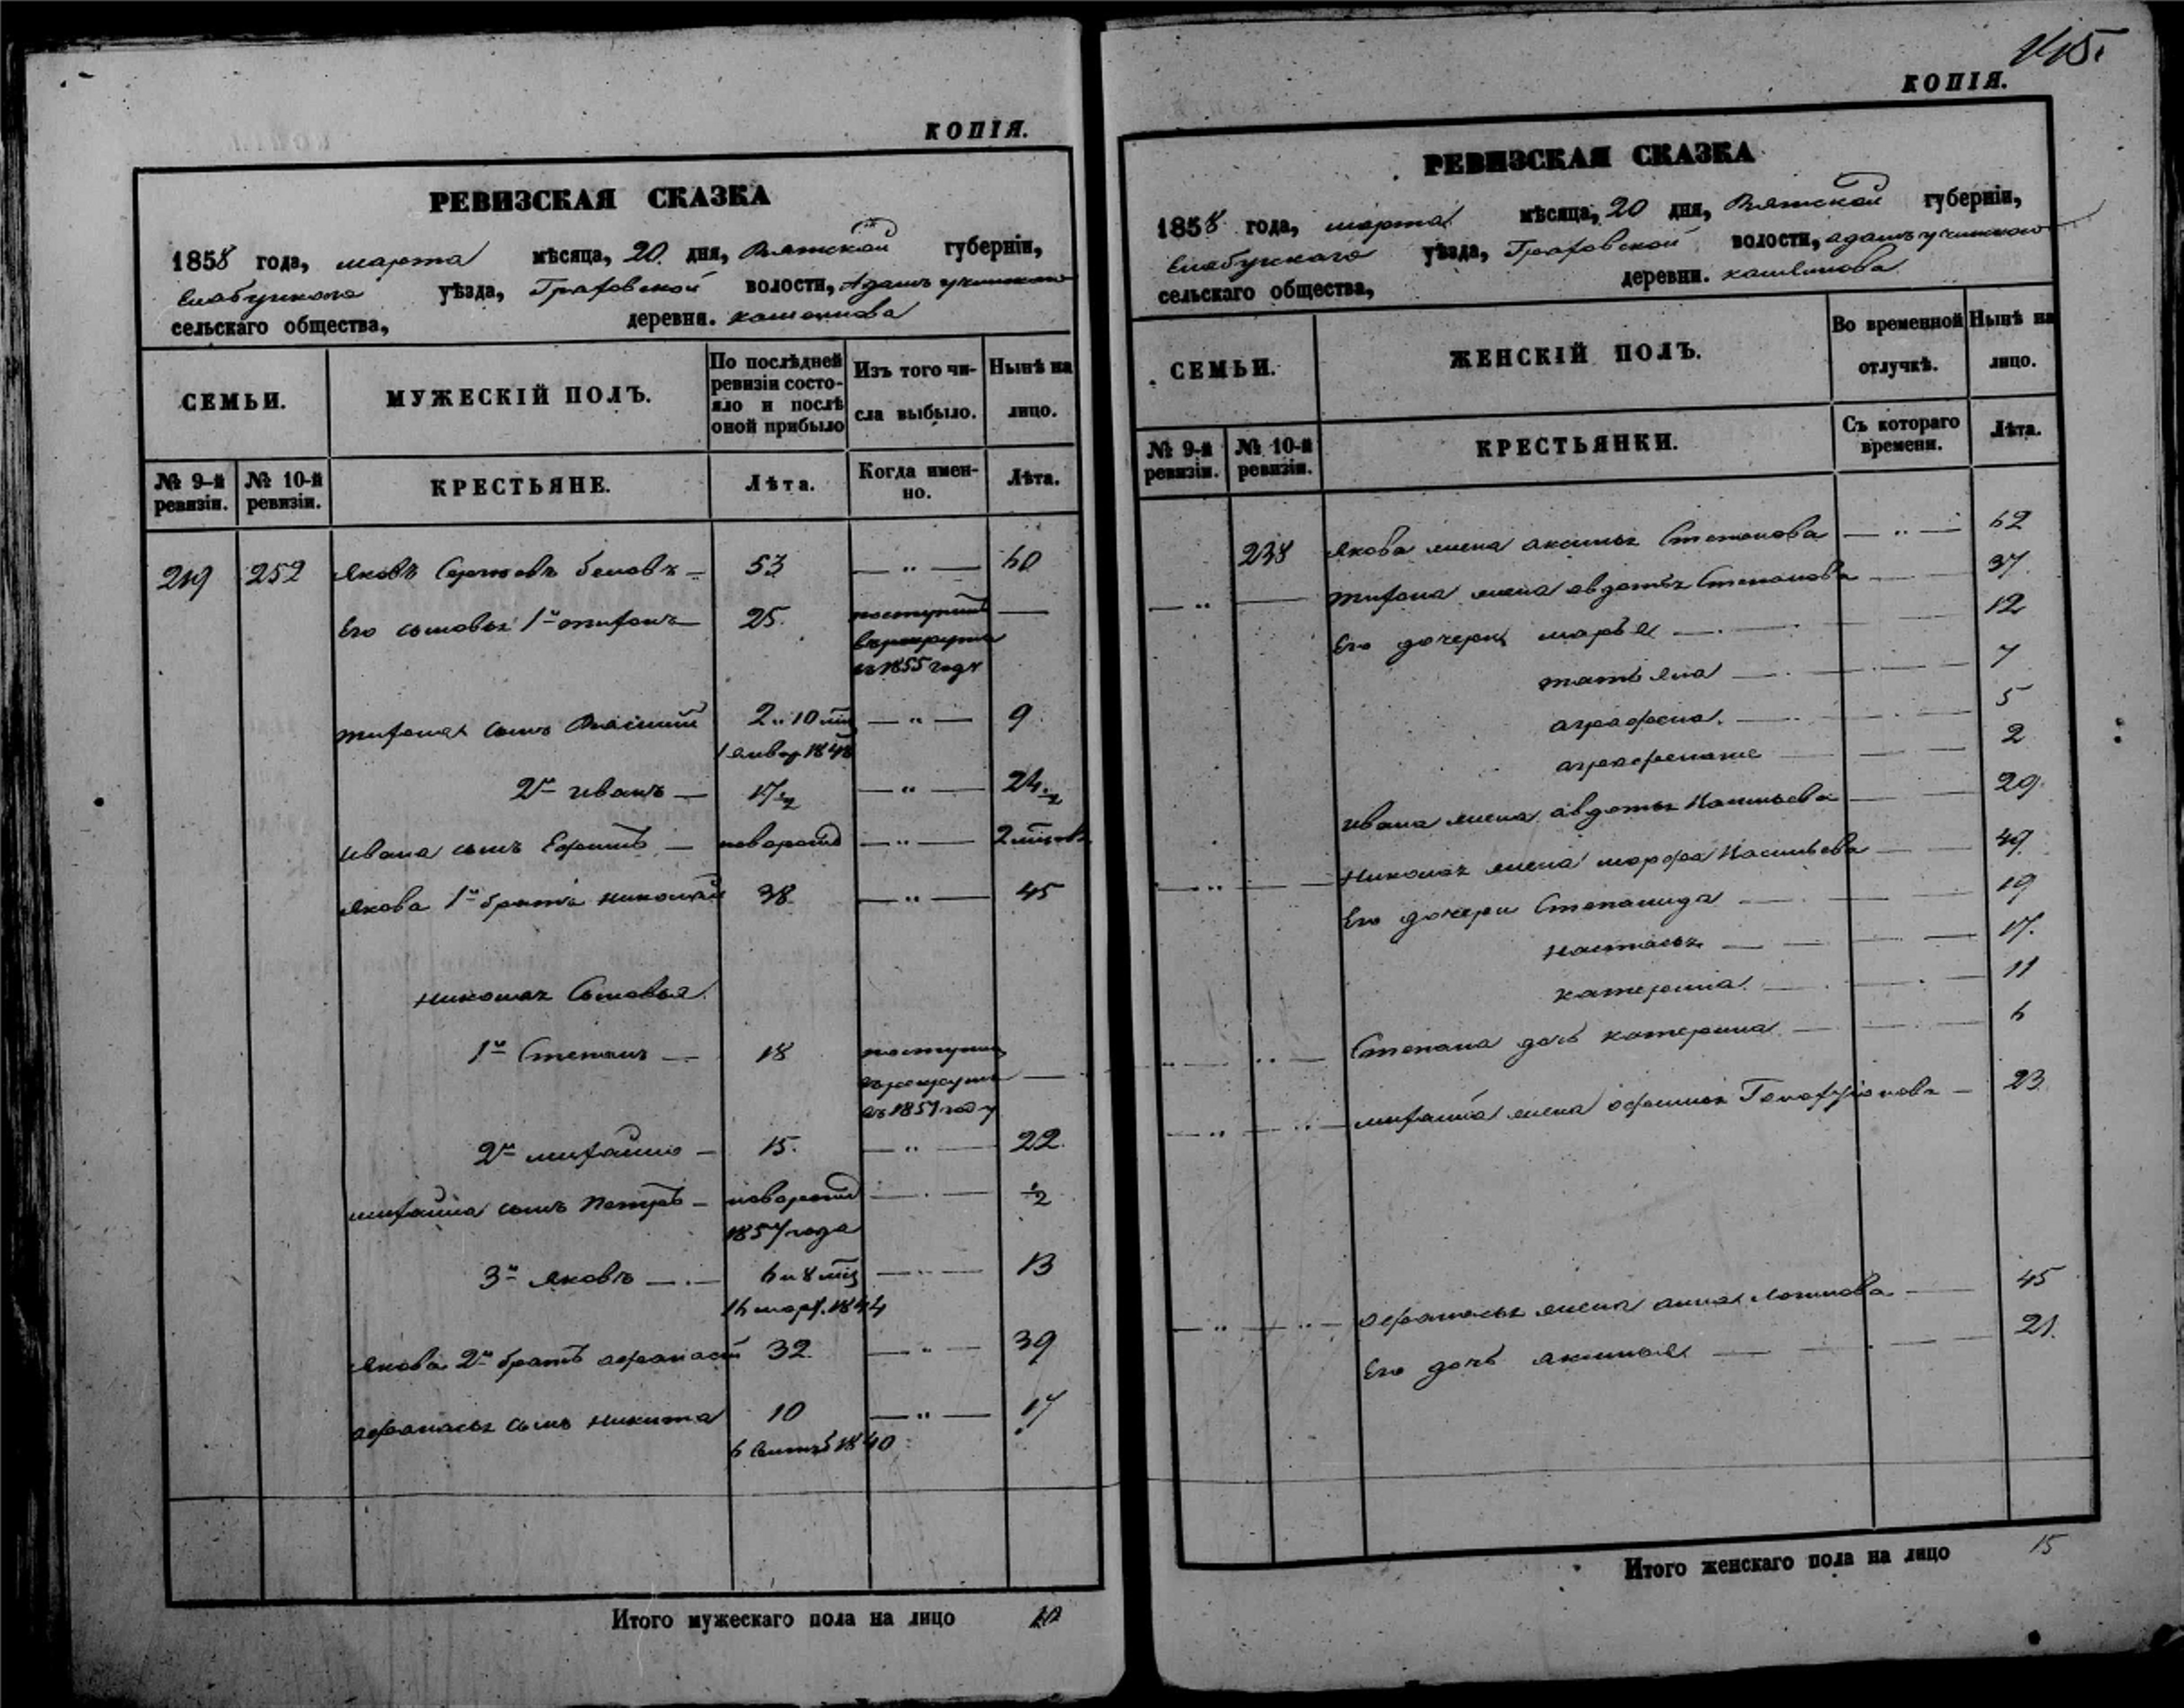 КОПІЯ.
РЕВИЗСКАЯ СКАЗКА
1858 года, марта мѣсяца, 20 дня, Вятской губерніи,
Елабужскаго уѣзда, Граховской волости, Адамъ учинскаго
сельскаго общества, деревни.
СЕМЬИ.
МУЖЕСКІЙ ПОЛЪ.
По послѣдней ревизіи состояло и послѣ оной прибыло
Изъ того числа выбыло.
Нынѣ на лицо.
№ 9-й ревизіи.
№ 10-й ревизіи.
КРЕСТЬЯНЕ.
Лѣта.
Когда именно.
Лѣта.
219 252 Яковъ Сергѣевъ Беловъ — 53 — " — 60
Его сыновья 1й Тифонъ 25. поступилъ —
въ рекруты
въ 1855 году
Тифона сынъ Василий 2 " 10 мѣс — " — 9
1 январ 1848
2й Иванъ — 17½ — " — 24½
Ивана сынъ Ефимъ — новорожд — " — 2 мѣсяц
Якова 1й братъ Николай 38. — " — 45
Николая Сыновья
1й Степанъ — 18 поступилъ
въ рекруты —
въ 1851 году
2й Михайло — 15. — " — 22.
Михайла сынъ Петръ — новорожд — " — ½
1857 года
3й Яковъ — 6 и 8 мѣс — " — 13
16 мар. 1844
Якова 2й братъ Афанасий 32. — " — 39
Афанасья сынъ Никита 10 — " — 17
6 Сентяб 1840
Итого мужескаго пола на лицо 10
145.
КОПІЯ.
РЕВИЗСКАЯ СКАЗКА
1858 года, марта мѣсяца, 20 дня, Вятской губерніи,
Елабужскаго уѣзда, Граховской волости, Адамъ учинскаго
сельскаго общества, деревни.
СЕМЬИ.
ЖЕНСКІЙ ПОЛЪ.
Во временной отлучкѣ.
Нынѣ на лицо.
№ 9-й ревизіи.
№ 10-й ревизіи.
КРЕСТЬЯНКИ.
Съ котораго времени.
Лѣта.
238 Якова жена Аксинья Степанова — " — 62
— " — Тифона жена Авдотья Степанова — 37.
Его дочери Марья — 12
Татьяна — 7
Аграфена. — 5
Аграфена же — 2
Ивана жена Авдотья Васильева — 29.
— " — Николая жена Марфа Васильева — 49.
Его дочери Степанида — 19
Настасья — 17.
Катерина. — 11
Степана дочь Катерина — 6
— " — Михайла жена Офимья — 23.
— " — Афанасья жена Анна Логинова — 45
Его дочь Аксинья — 21.
Итого женскаго пола на лицо 15